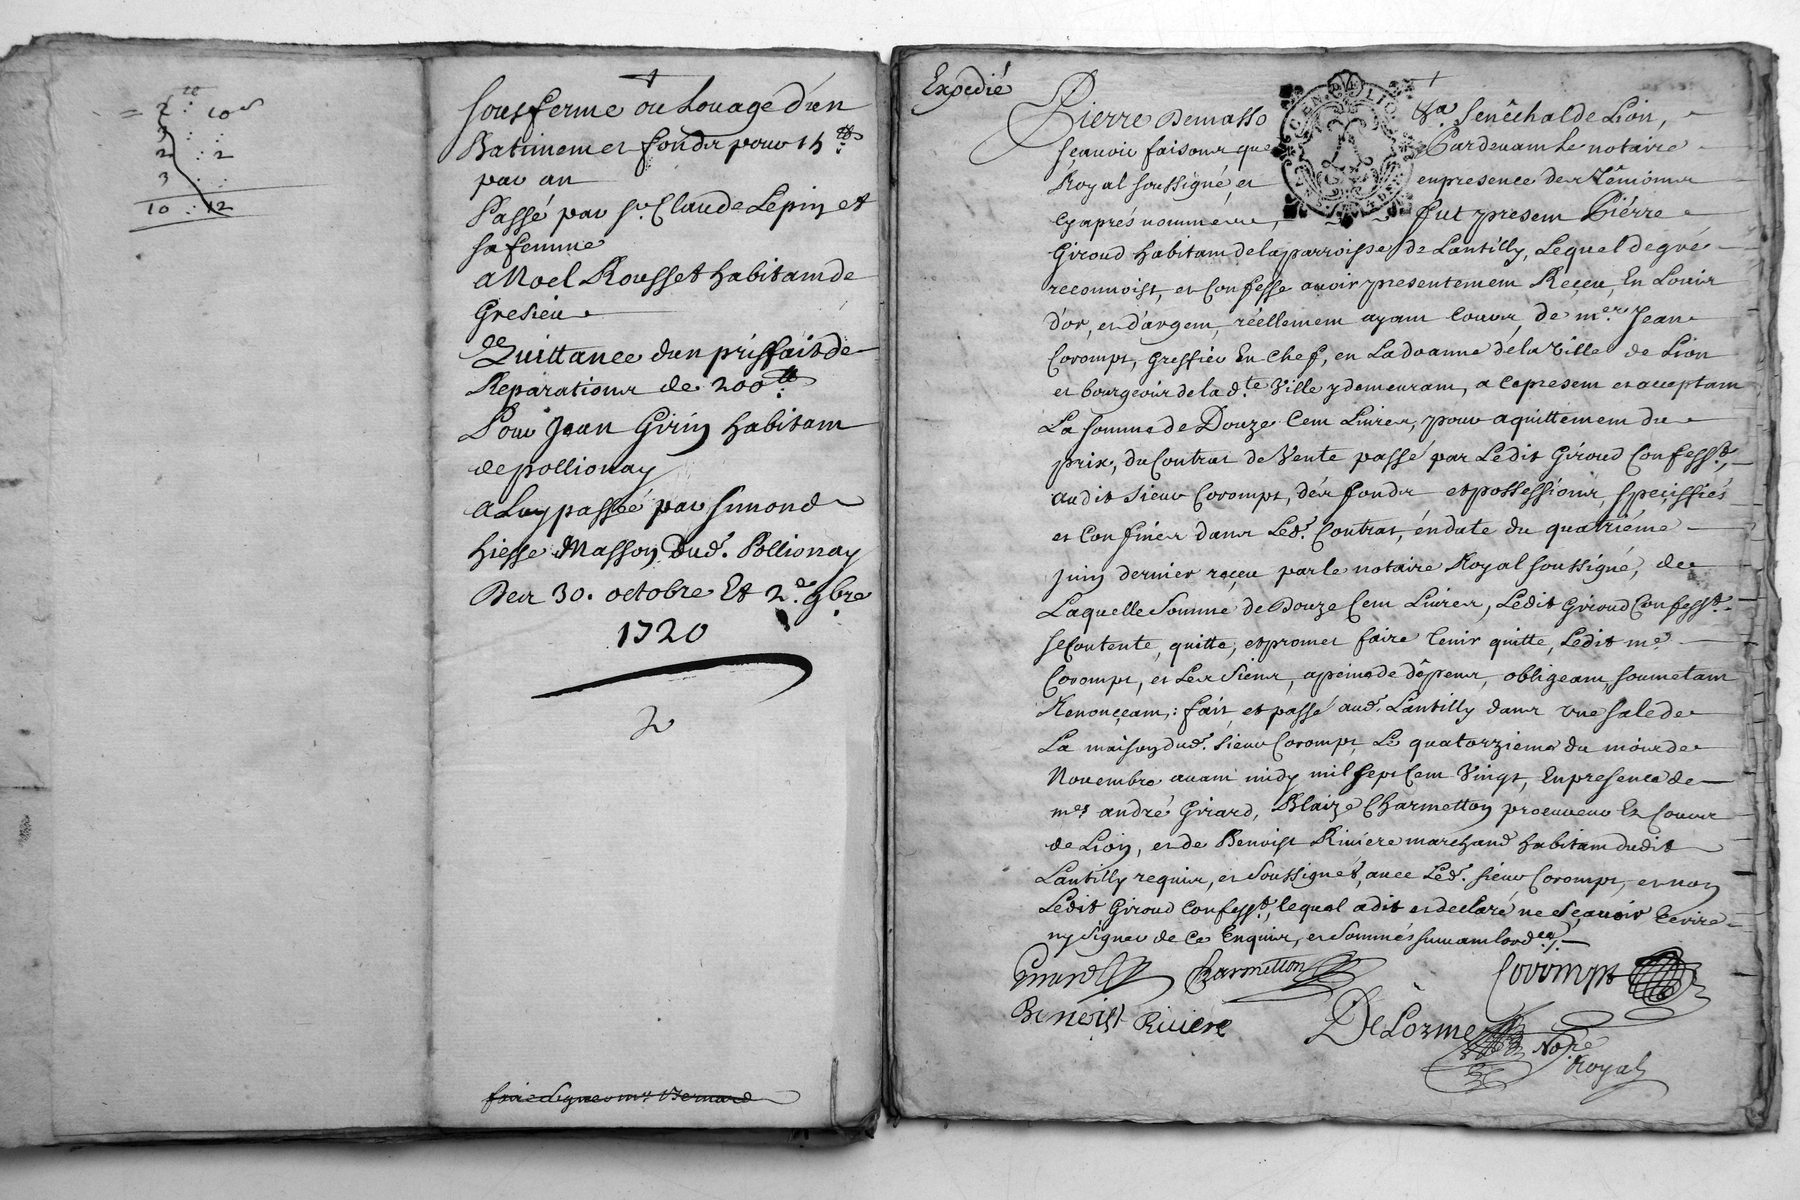 = 2 : 10 s
3 : :
2 : 2
3 : :
10 : 12
sousferme ou Louage d'un
Batiment et fondz pour 15 tt
par an
Passé par sr. Claude Lepin et
sa femme
a Noel Rousset habitant de
Gresieu
Quittance d'un prisfait de
Reparations de 200 tt
Pour Jean Girin habitant
de pollionay
a Luy passée par simond
hiesse Masson dud. Pollionay
Des 30. octobre Et 2e. 9bre
1720
2
faire signer mr Bernard
Expedié
Pierre Demasso Sénéchal de Lion,
sçavoir faisons que Pardevant Le notaire
Royal soussigné et en presence des témoins
cy après nommés, fut present Piérre
Giroud habitant de la parroisse de Lantilly, Lequel de gré
reconnoist, et Confesse avoir presentement Reçeu, En Louis
d'or, et d'argent, réellement ayant Cours, de mer. Jean
Corompt, greffier En chef, en La doanne de la Ville de Lion
et bourgeois de la d.te Ville y demeurant, a ce present et acceptant
La somme de Douze Cent Livres, pour aquittement du
prix, du Contrat de Vente passé par Ledit Giroud Confesst.,
audit sieur Corompt, dés fondz et possessions, speciffiés
et Confinés dans Led. Contrat, en date du quatriéme
juin dernier reçeu par le notaire Royal soussigné, de
Laquelle Somme de Douze Cent Livres, Ledit Giroud Confesst.
se Contente, quitte, et promet faire tenir quitte, Ledit me.
Corompt, et Les Siens, a peine de dépens, obligeant, soumetant
Renonçeant,: fait et passé aud. Lantilly dans une sale de
La maison dud. sieur Corompt Le quatorzieme du mois de
Novembre avant midy mil sept Cent Vingt, En presence de
mes andré Girard, Blaize Charmetton procureur Es Cours
de Lion, et de Benoist Riviere marchand habitant dudit
Lantilly requis, et Soussignés, avec Led. sieur Corompt, et non
Ledit Giroud Confesst. lequel a dit et declaré ne Sçavoir Ecrire
ny Signer de Ce Enquis, et Sommés suivant Lordce./.
Girard Charmetton Corompt
Benoist Riviere DeLorme Nore
Royal